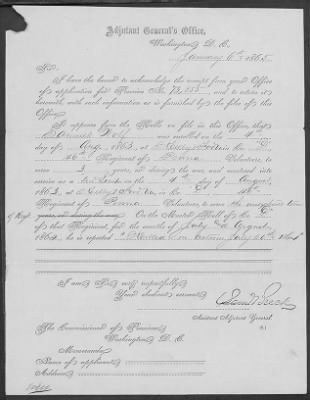 Adjutant General's Office,
Washington D. C.
January 6th 1865
Sir:
I have the honor to acknowledge the receipt from your Office
of application for Pension No. 78.855, and to return it
herewith, with such information as is furnished by the files of this
Office.
It appears from the Rolls on file in this Office, that
was enrolled on the 4th
day of Aug, 1863, at in Co. "D"
46th Regiment of Penna Volunteers, to
serve 3 years, or during the war, and mustered into
service as a on the 4th day of August,
1863, at in Co. "D" 46th
Regiment of Penna Volunteers, to serve
years, or during the war. On the Muster Roll of Co. "D"
of that Regiment, for the months of July & August,
1864, he is reported "Killed in action July 20th 1864"
I am, Sir, very respectfully,
Your obedient servant,
Assistant Adjutant General.
The Commissioner of Pensions,
Washington D. C.
Memoranda:
Name of applicant
Address